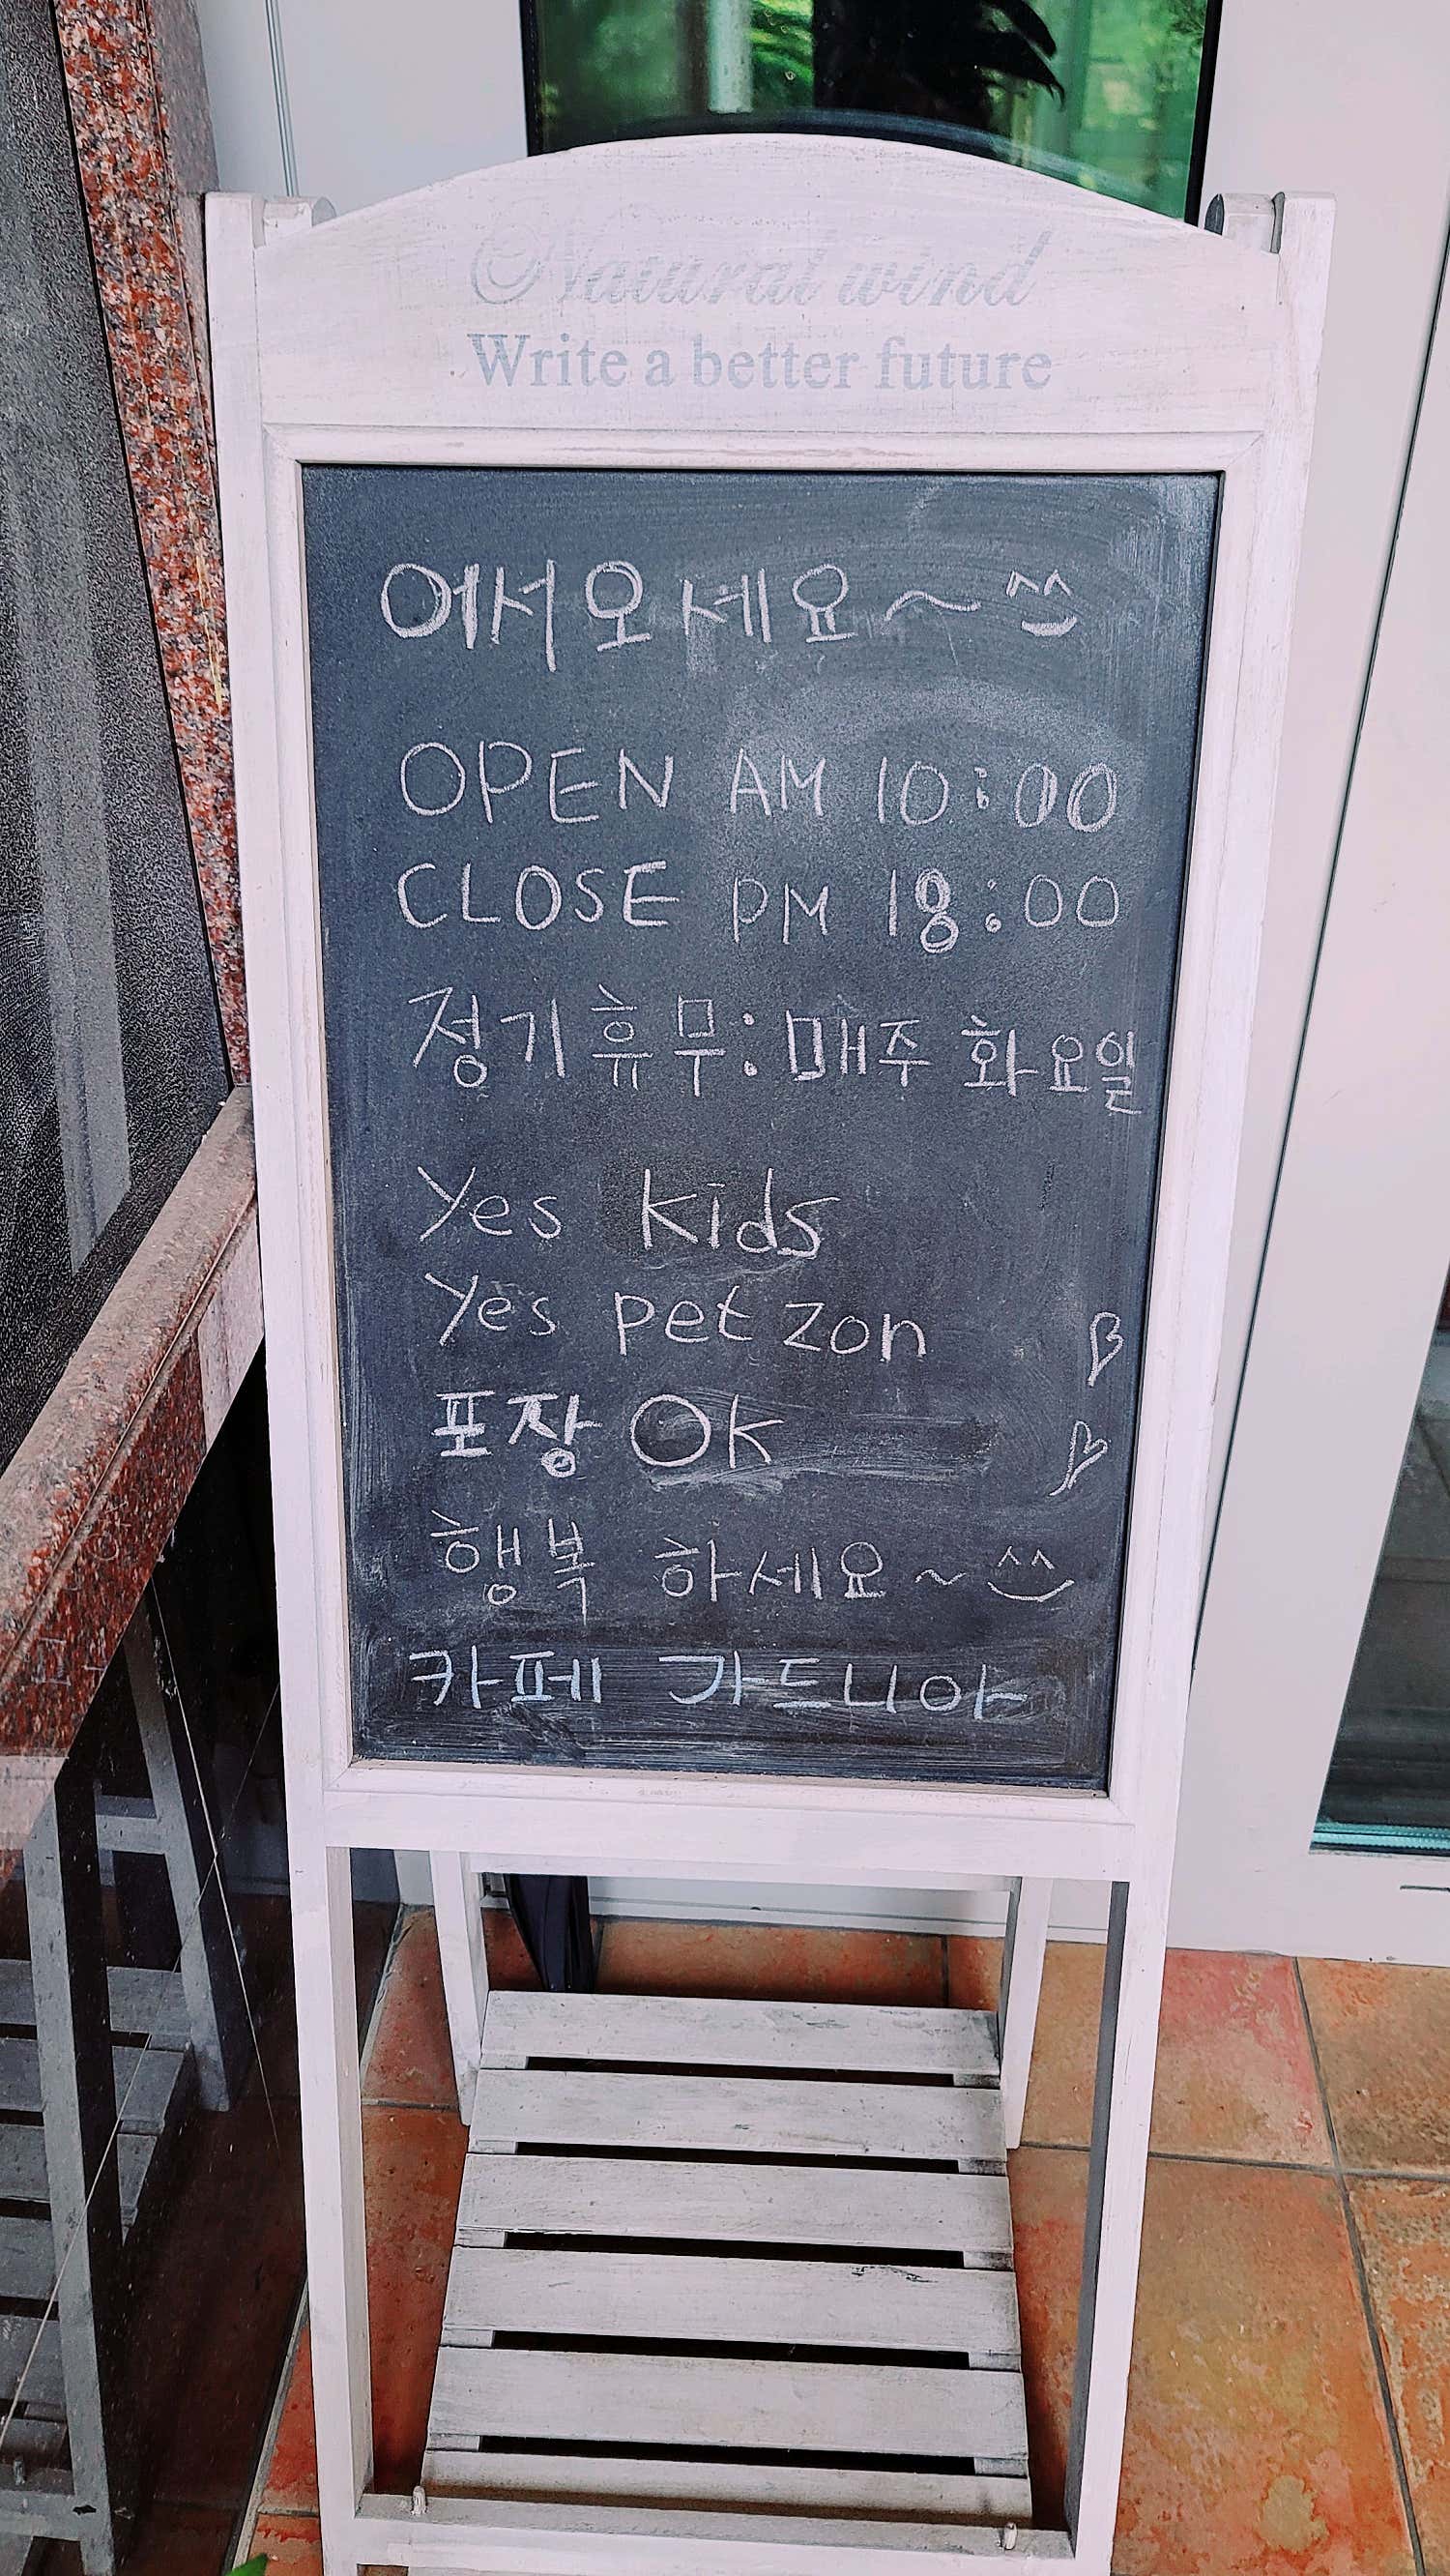 Natural wind
Write a better future
어서오세요~ ^^
OPEN AM 10:00
CLOSE PM 18:00
정기휴무: 매주 화요일
Yes kids
Yes pet zon
포장 OK
행복 하세요~ ^^
카페 가드니아